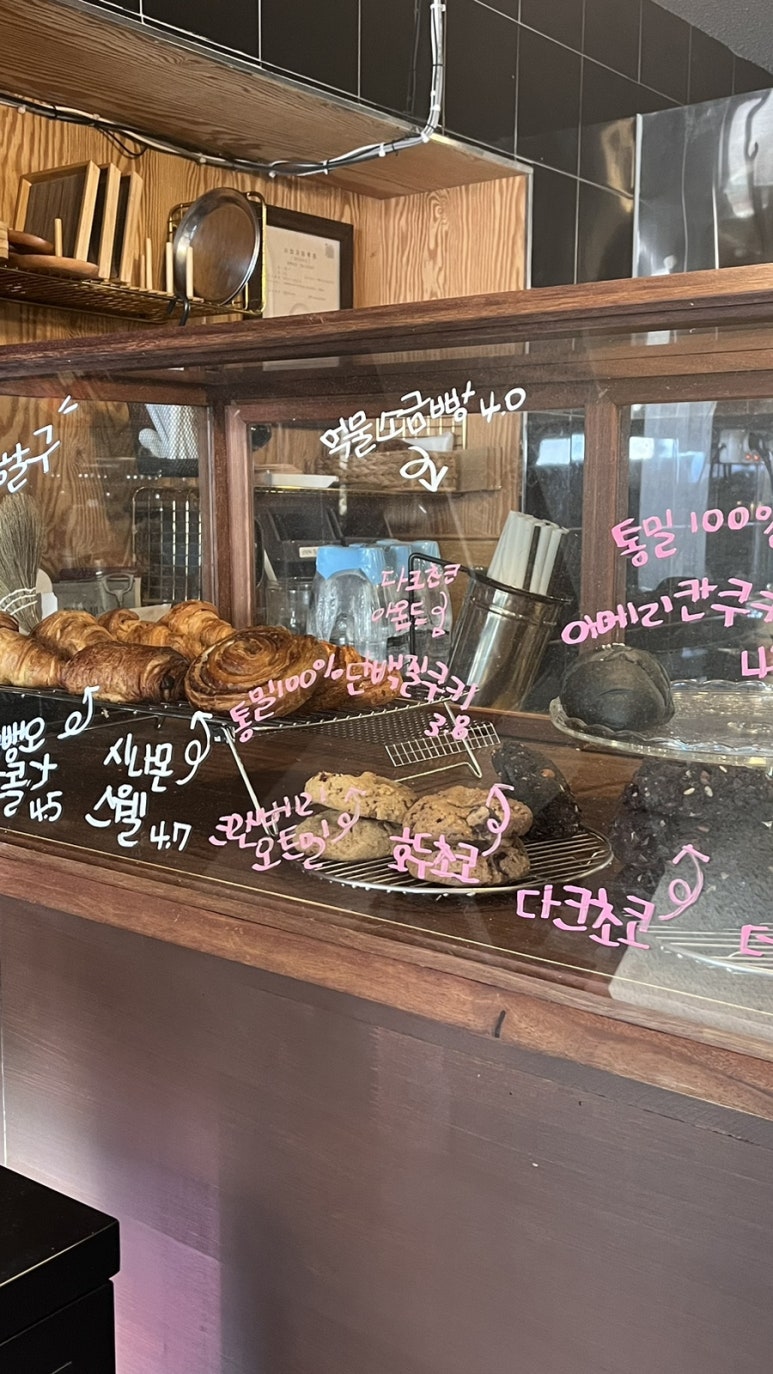 먹물소금빵 4.0
통밀 100%
다크초코
아몬드
아메리칸쿠
통밀100%단백질쿠키
3.8
시나몬
스웰 4.7
4.5
크랜베리
오트밀
호두초코
다크초코